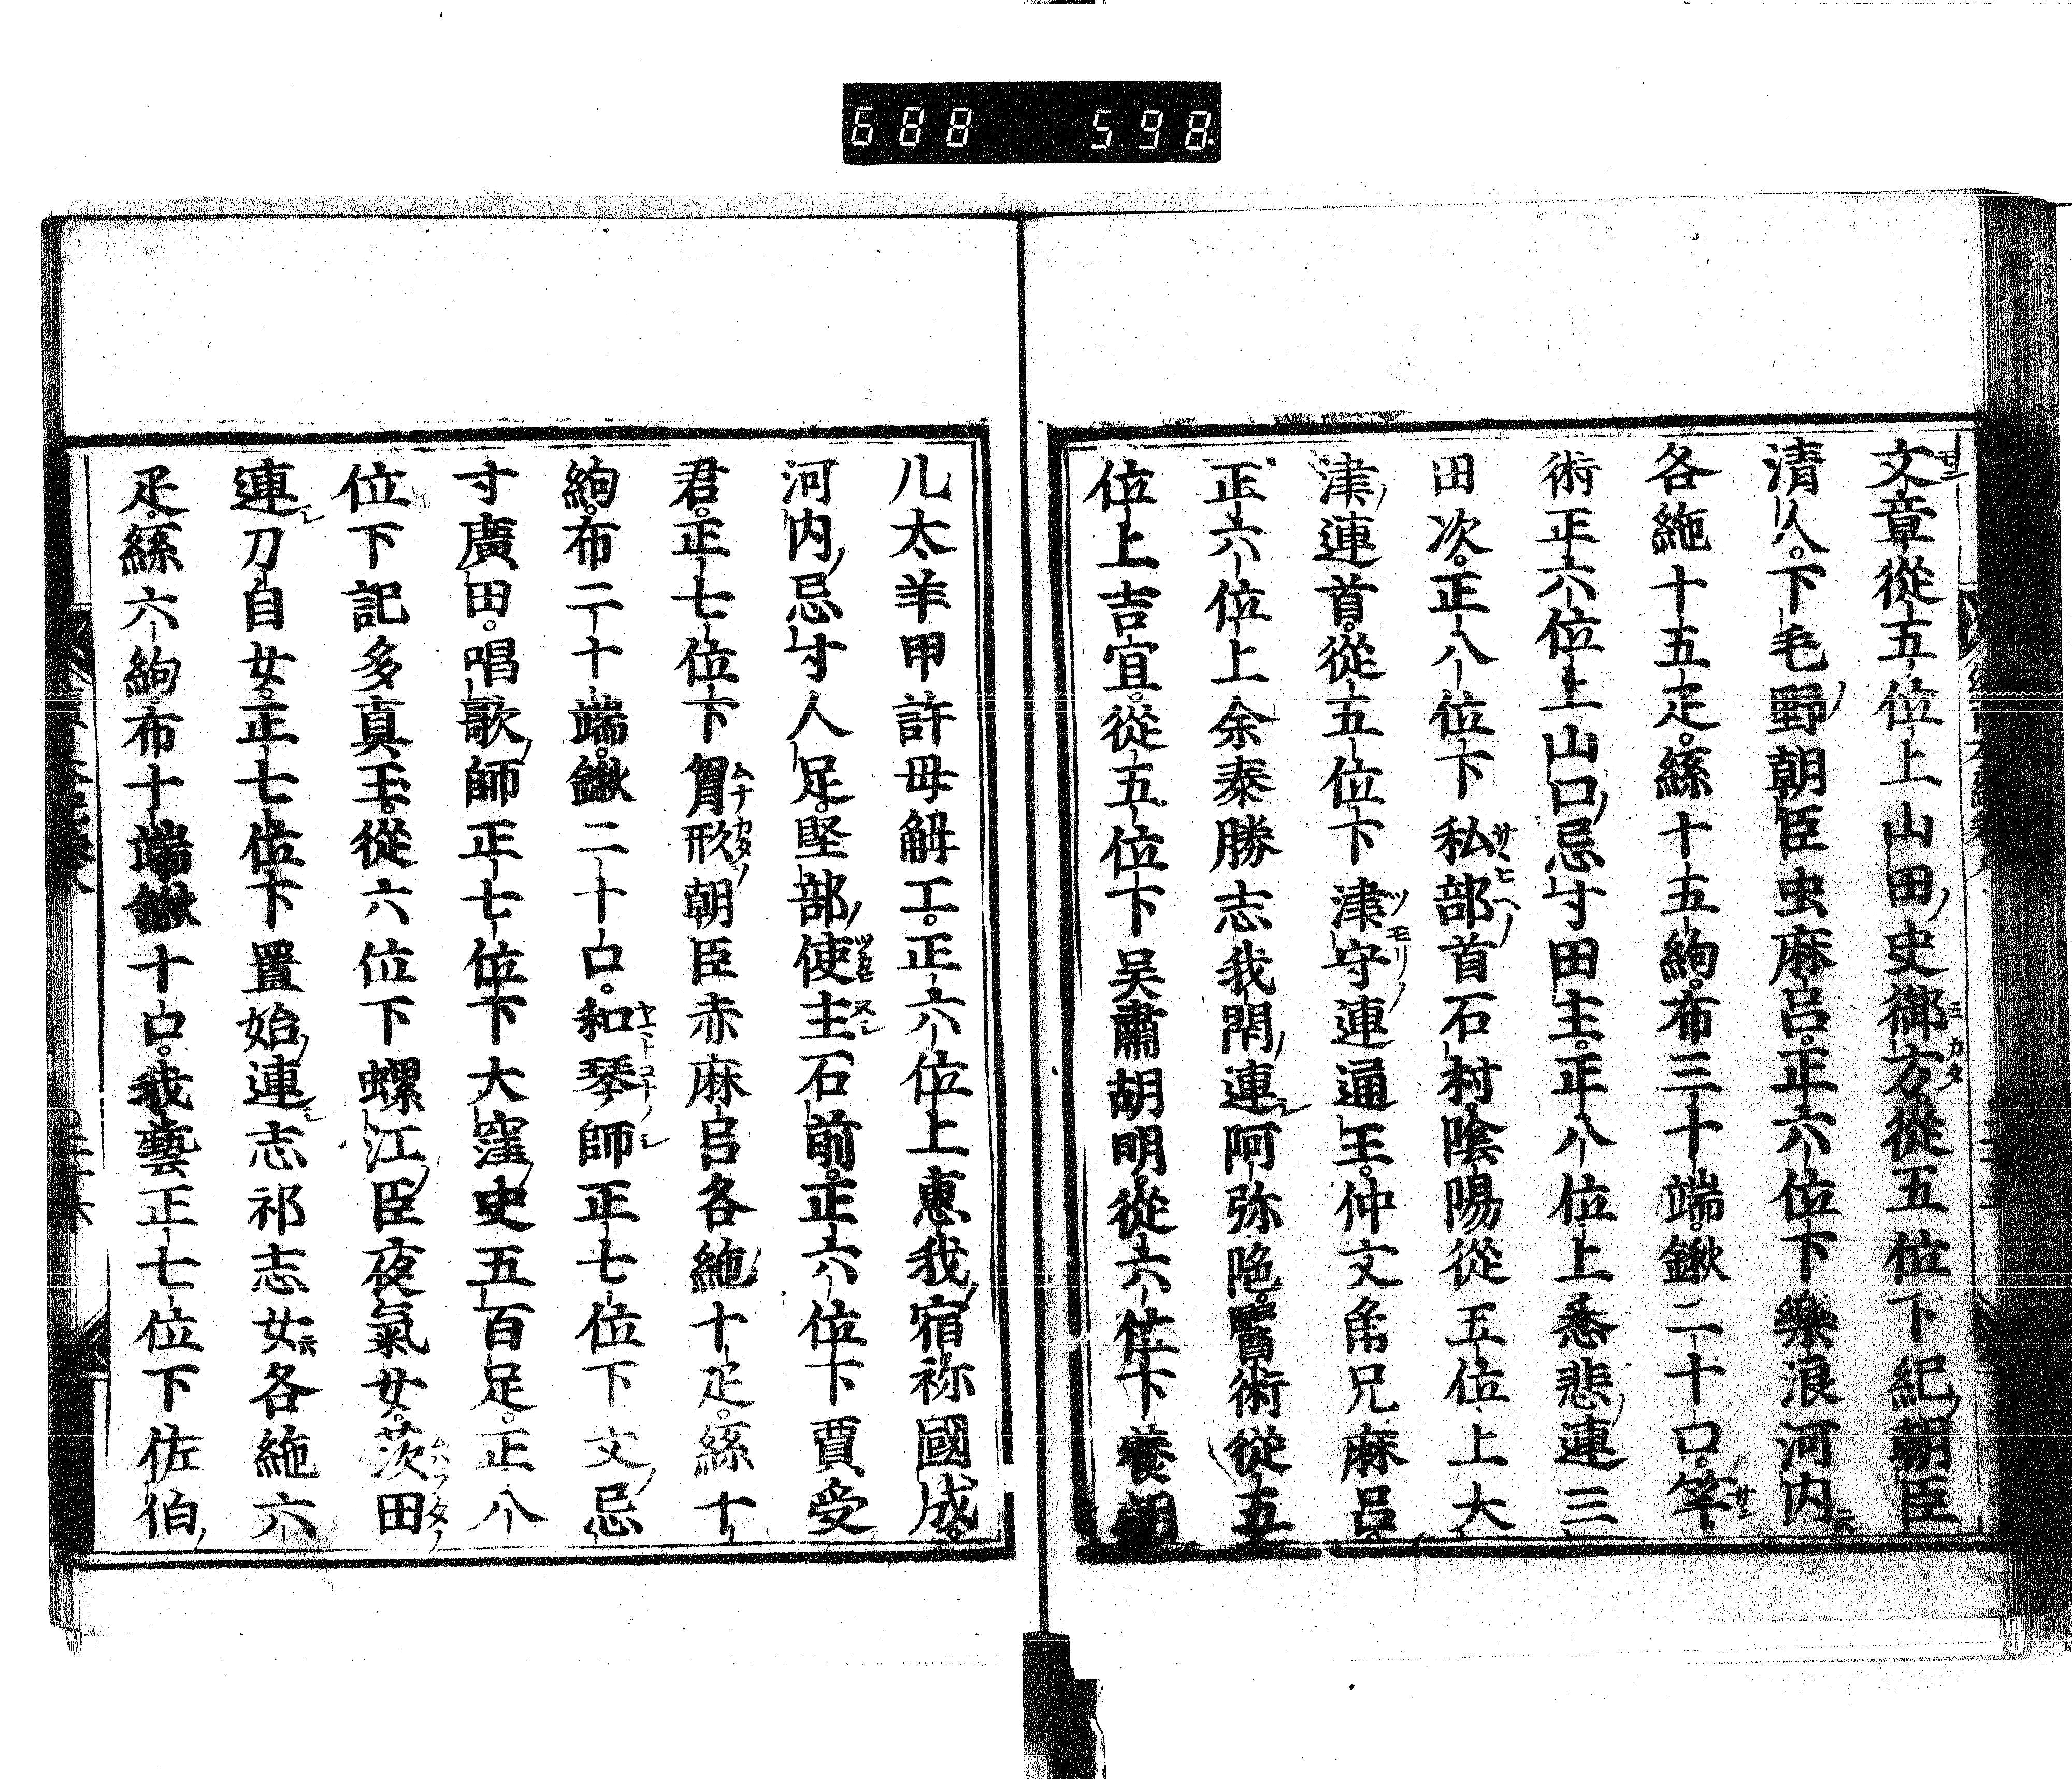 688 598
文章從五位上山田史御方從五位下紀朝臣
清人。下毛野朝臣虫麻呂。正六位下樂浪河内
各絁十五疋。絲十五絇。布三十端。鍬二十口。竿
術正六位上山口忌寸田主。正八位上悉悲連三
田次。正八位下私部首石村陰陽從五位上大
津連首。從五位下津守連通王。仲文角兄麻呂。
正六位上余泰勝志我閇連阿弥陁。醫術從五
位上吉宜。從五位下吴肅胡明。從六位下
儿太羊甲許母觧工。正六位上惠我宿祢國成。
河内忌寸人足。堅部使主石前。正六位下賈受
君。正七位下胷形朝臣赤麻呂各絁十疋。絲十
絇。布二十端。鍬二十口。和琴師正七位下文忌
寸廣田。唱歌師正七位下大窪史五百足。正八
位下記多真玉。從六位下螺江臣夜氣女。茨田
連刀自女。正七位下置始連志祁志女各絁六
疋。絲六絇。布十端鍬十口。我藝正七位下佐伯